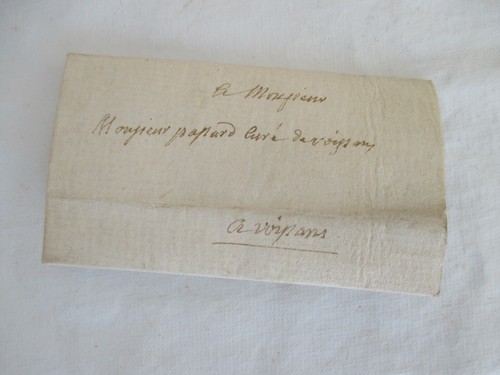 A Monsieur
Monsieur passard Curé de voissans
A voissans